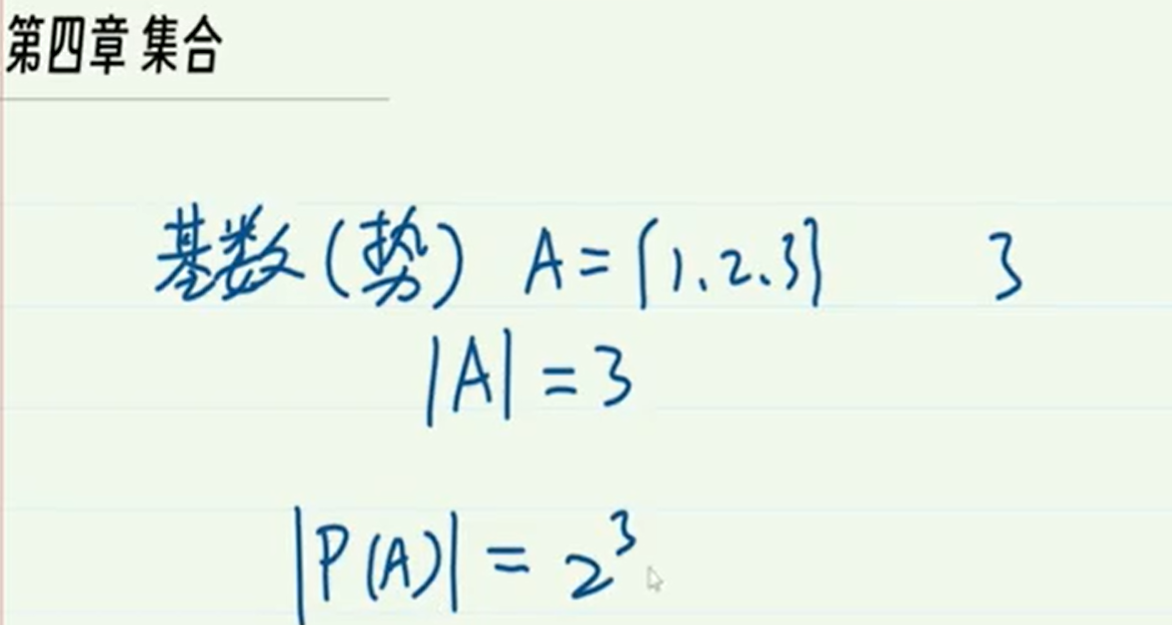 第四章 集合
基数(势) A={1.2.3} 3
|A|=3
|P(A)|=2³